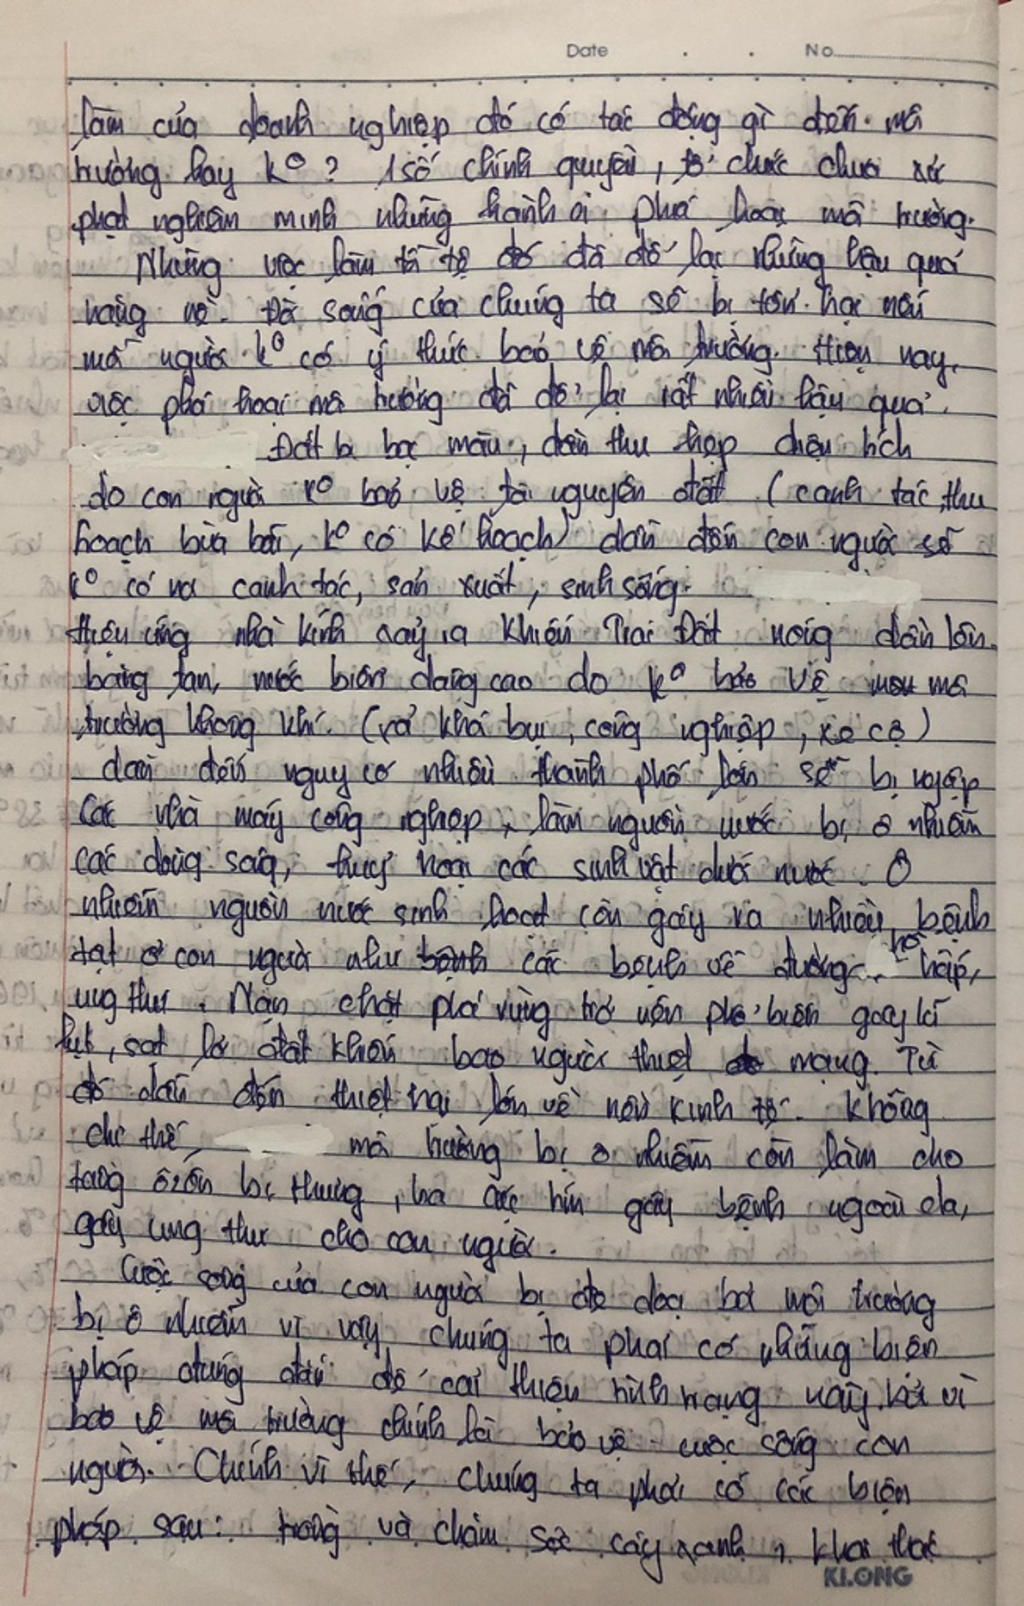 Date . . No
làm của doanh nghiệp đó có tác động gì đến môi
trường hay k° ? 1 số chính quyền, tổ chức chưa xử
phạt nghiêm minh những hành vi phá hoại môi trường.
Những việc làm tồi tệ đó đã để lại những hậu quả
nặng nề. Đời sống của chúng ta sẽ bị tổn hại nếu
mỗi người k° có ý thức bảo vệ môi trường. Hiện nay,
việc phá hoại môi trường đã để lại rất nhiều hậu quả.
Đất bị bạc màu, dần thu hẹp diện tích
do con người k° bảo vệ tài nguyên đất (canh tác, thu
hoạch bừa bãi, k° có kế hoạch) dẫn đến con người sẽ
k° có nơi canh tác, sản xuất, sinh sống.
Hiệu ứng nhà kính xảy ra khiến Trái Đất nóng dần lên.
băng tan, nước biển dâng cao do k° bảo vệ môi
trường không khí. (xả khói bụi, công nghiệp, xe cộ)
dẫn đến nguy cơ nhiều thành phố lớn sẽ bị ngập
Các nhà máy công nghiệp, làm nguồn nước bị ô nhiễm
các dòng sông, hủy hoại các sinh vật dưới nước. Ô
nhiễm nguồn nước sinh hoạt còn gây ra nhiều bệnh
tật ở con người như các bệnh về đường hô hấp,
ung thư. Nạn chặt phá rừng trở nên phổ biến gây lũ
lụt, sạt lở đất khiến bao người thiệt mạng. Từ
đó dẫn đến thiệt hại lớn về nền kinh tế. Không
chỉ thế, môi trường bị ô nhiễm còn làm cho
tầng ôzôn bị thủng, tia cực tím gây bệnh ngoài da,
gây ung thư cho con người.
Cuộc sống của con người bị đe dọa bởi môi trường
bị ô nhiễm vì vậy chúng ta phải có những biện
pháp đúng đắn để cải thiện tình trạng này bởi vì
bảo vệ môi trường chính là bảo vệ cuộc sống con
người. Chính vì thế, chúng ta phải có các biện
pháp sau: trồng và chăm sóc cây xanh, khai thác
KLONG